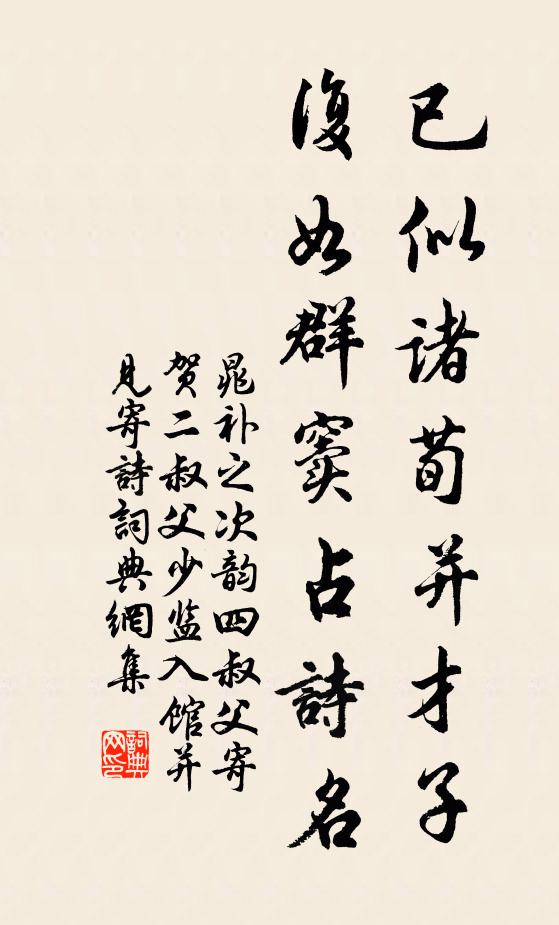 已似诸荀并才子
復如群窦占詩名
晁补之次韵四叔父寄
贺二叔父少监入馆并
见寄詩詞典網集
詞典
网印